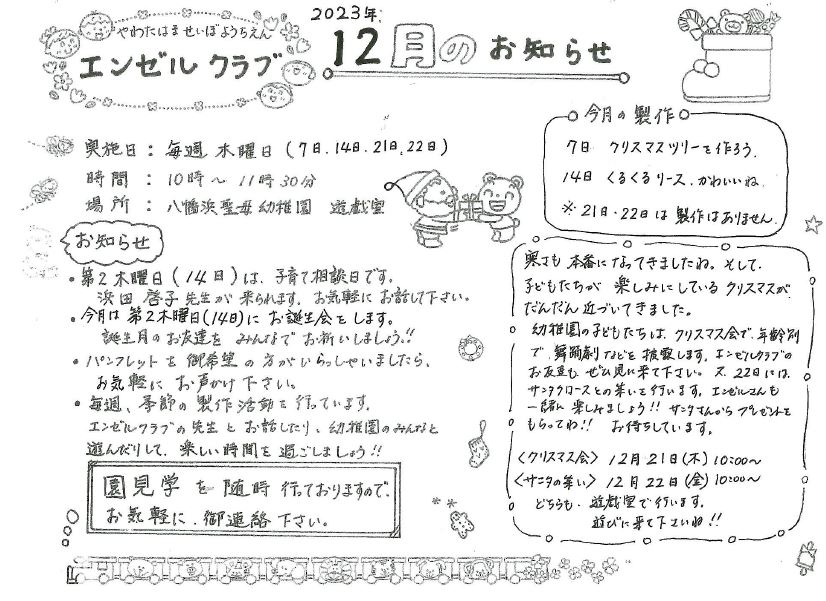 やわたはませいぼようちえん
エンゼルクラブ
2023年
12月のお知らせ
実施日：毎週 木曜日（7日、14日、21日、22日）
時間：10時～11時30分
場所：八幡浜聖母幼稚園 遊戯室
お知らせ
・第2木曜日(14日)は、子育て相談日です。
浜田 啓子先生が来られます。お気軽にお話して下さい。
・今月は第2木曜日(14日)にお誕生会をします。
誕生月のお友達をみんなでお祈いしましょう!!
・パンフレットを御希望の方がいらっしゃいましたら、
お気軽にお声がけ下さい。
・毎週、季節の製作活動を行っています。
エンゼルクラブの先生とお話したり、幼稚園のみんなと
遊んだりして、楽しい時間を過ごしましょう!!
園見学を随時行っておりますので、
お気軽に、御連絡下さい。
今月の製作
7日 クリスマスツリーを作ろう。
14日 くるくるリース。かわいいね。
※21日・22日は製作はありません。
寒さも本番になってきましたね。そして、
子どもたちが楽しみにしているクリスマスが
だんだん近づいてきました。
幼稚園の子どもたちは、クリスマス会で、年齢別
で、舞踊劇などを披露します。エンゼルクラブの
お友達も、ぜひ見に来て下さい。又、22日には、
サンタクロースとの集いを行います。エンゼルさんも
一緒に楽しみましょう!! サンタさんからプレゼントを
もらってね!! お待ちしています。
〈クリスマス会〉12月21日(木)10:00～
〈サンタの集い〉12月22日(金)10:00～
どちらも、遊戯室で行います。
遊びに来て下さいね!!